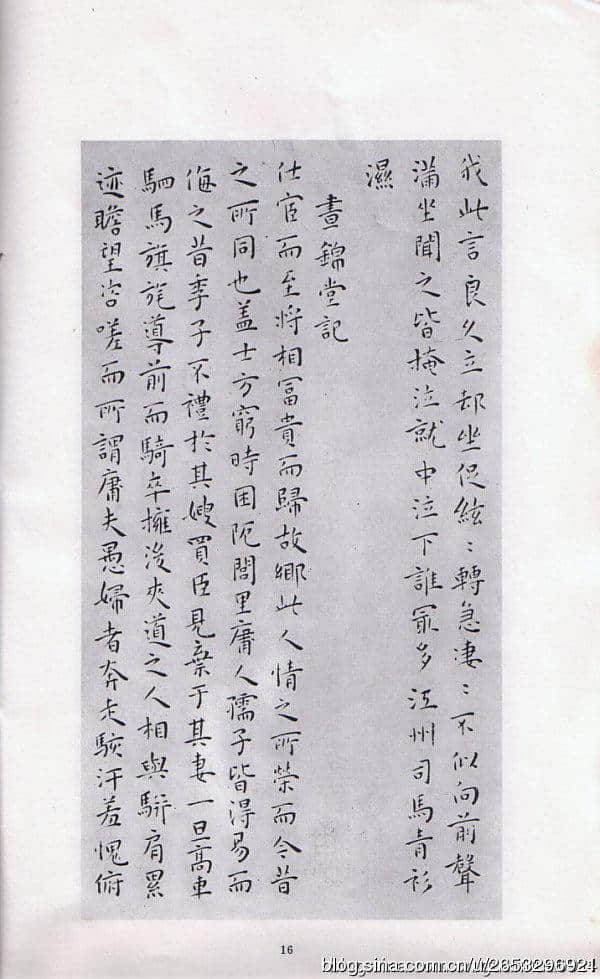 我此言良久立却坐促絃〻轉急凄〻不似向前聲
滿坐聞之皆掩泣就中泣下誰最多江州司馬青衫
濕
晝錦堂記
仕宦而至將相冨貴而歸故鄉此人情之所榮而今昔
之所同也蓋士方窮時困阨閭里庸人孺子皆得易而
侮之昔季子不禮於其嫂買臣見棄于其妻一旦高車
駟馬旗旄導前而騎卒擁後夾道之人相與駢肩累
迹瞻望咨嗟而所謂庸夫愚婦者奔走駭汗羞愧俯
16
blog.sina.com.cn/u/2853296921